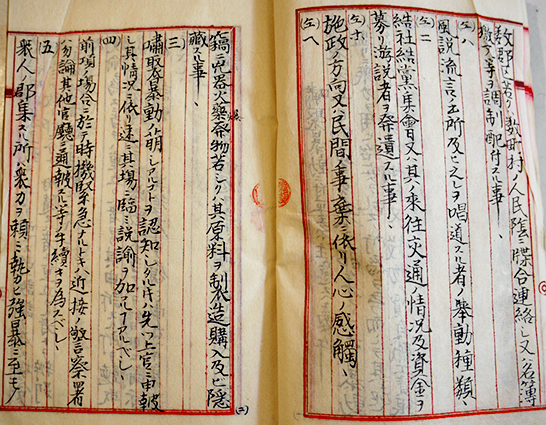 数郡若クハ数町村ノ人民陰ニ牒合連絡シ又ハ名簿
檄文等ヲ調制配付スル事、
(左)ハ
風説流言ノ出所及ヒ之レヲ唱道スル者ノ舉動種類、
(左)ニ
結社結黨集會日又ハ其ノ来往交通ノ情况及資金ヲ
募リ游説者ヲ發遣スル事、
(左)ホ
施政ノ方向又ハ民間ノ事業ニ依リ人心ノ感觸、
(左)ヘ
竊ニ兵器火藥爆發物若シクハ其原料ヲ製造購入及ヒ隠
藏スル事、
三
嘯聚暴動ノ萌シアルコトヲ認知シタルトキハ先ツ上官ニ申報
シ其情况ニ依リ速ニ其場ニ臨ミ説諭ヲ加フルコアルベシ、
四
前項ノ場合ニ於テ時機緊急ナルトキハ近接ノ警察署
ハ勿論其他官廳ニ通報スル等ノ手續キヲ為スベシ、
五
衆人ノ郡集スル所ハ衆力ヲ頼ミ勢ヒ強暴ニ至モノ
(二)